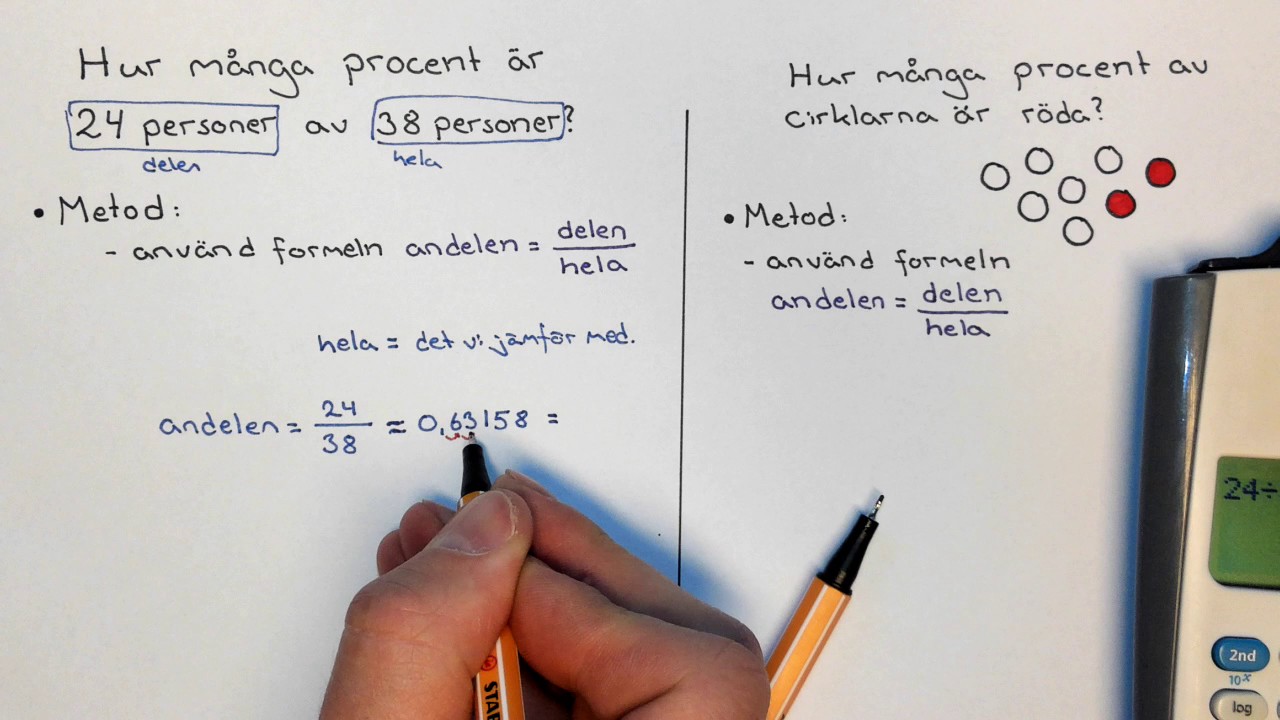 Hur många procent är
24 personer av 38 personer?
delen hela
• Metod:
- använd formeln andelen = delen / hela
hela = det vi jämför med.
andelen = 24 / 38 ≈ 0,63158 =
Hur många procent av
cirklarna är röda?
• Metod:
- använd formeln
andelen = delen / hela
24÷
2nd
10ˣ
log